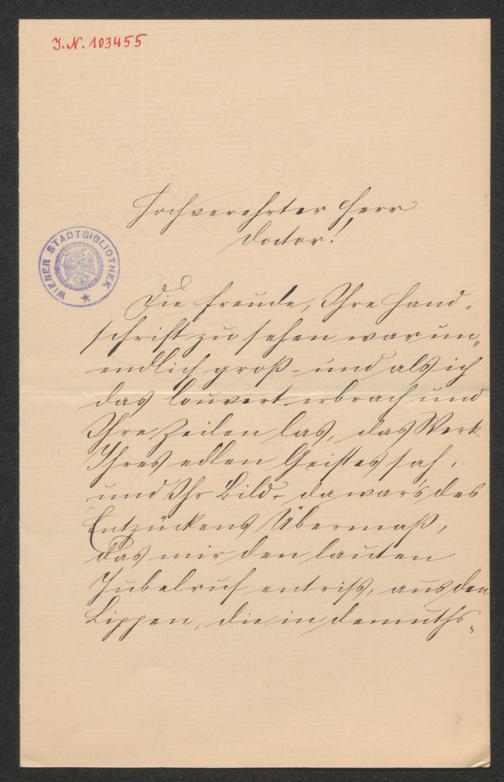 J. N. 103455
Hochverehrter Herr
Doctor!
WIENER STADTBIBLIOTHEK
Die Freude, Ihre Hand-
schrift zu sehen war un-
endlich groß - und als ich
das Couvert erbrach und
Ihre Zeilen las, das Werk
Ihres edlen Geistes sah,
und Ihr Bild - da war's des
Entzückens Übermaß,
das mir den lauten
Jubelruf entriß, aus den
Lippen, die in demuths-